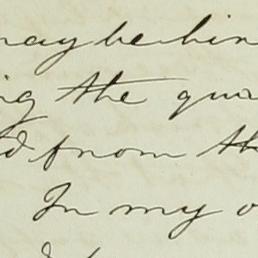 may be hin
ing the qua
d from th
In my o